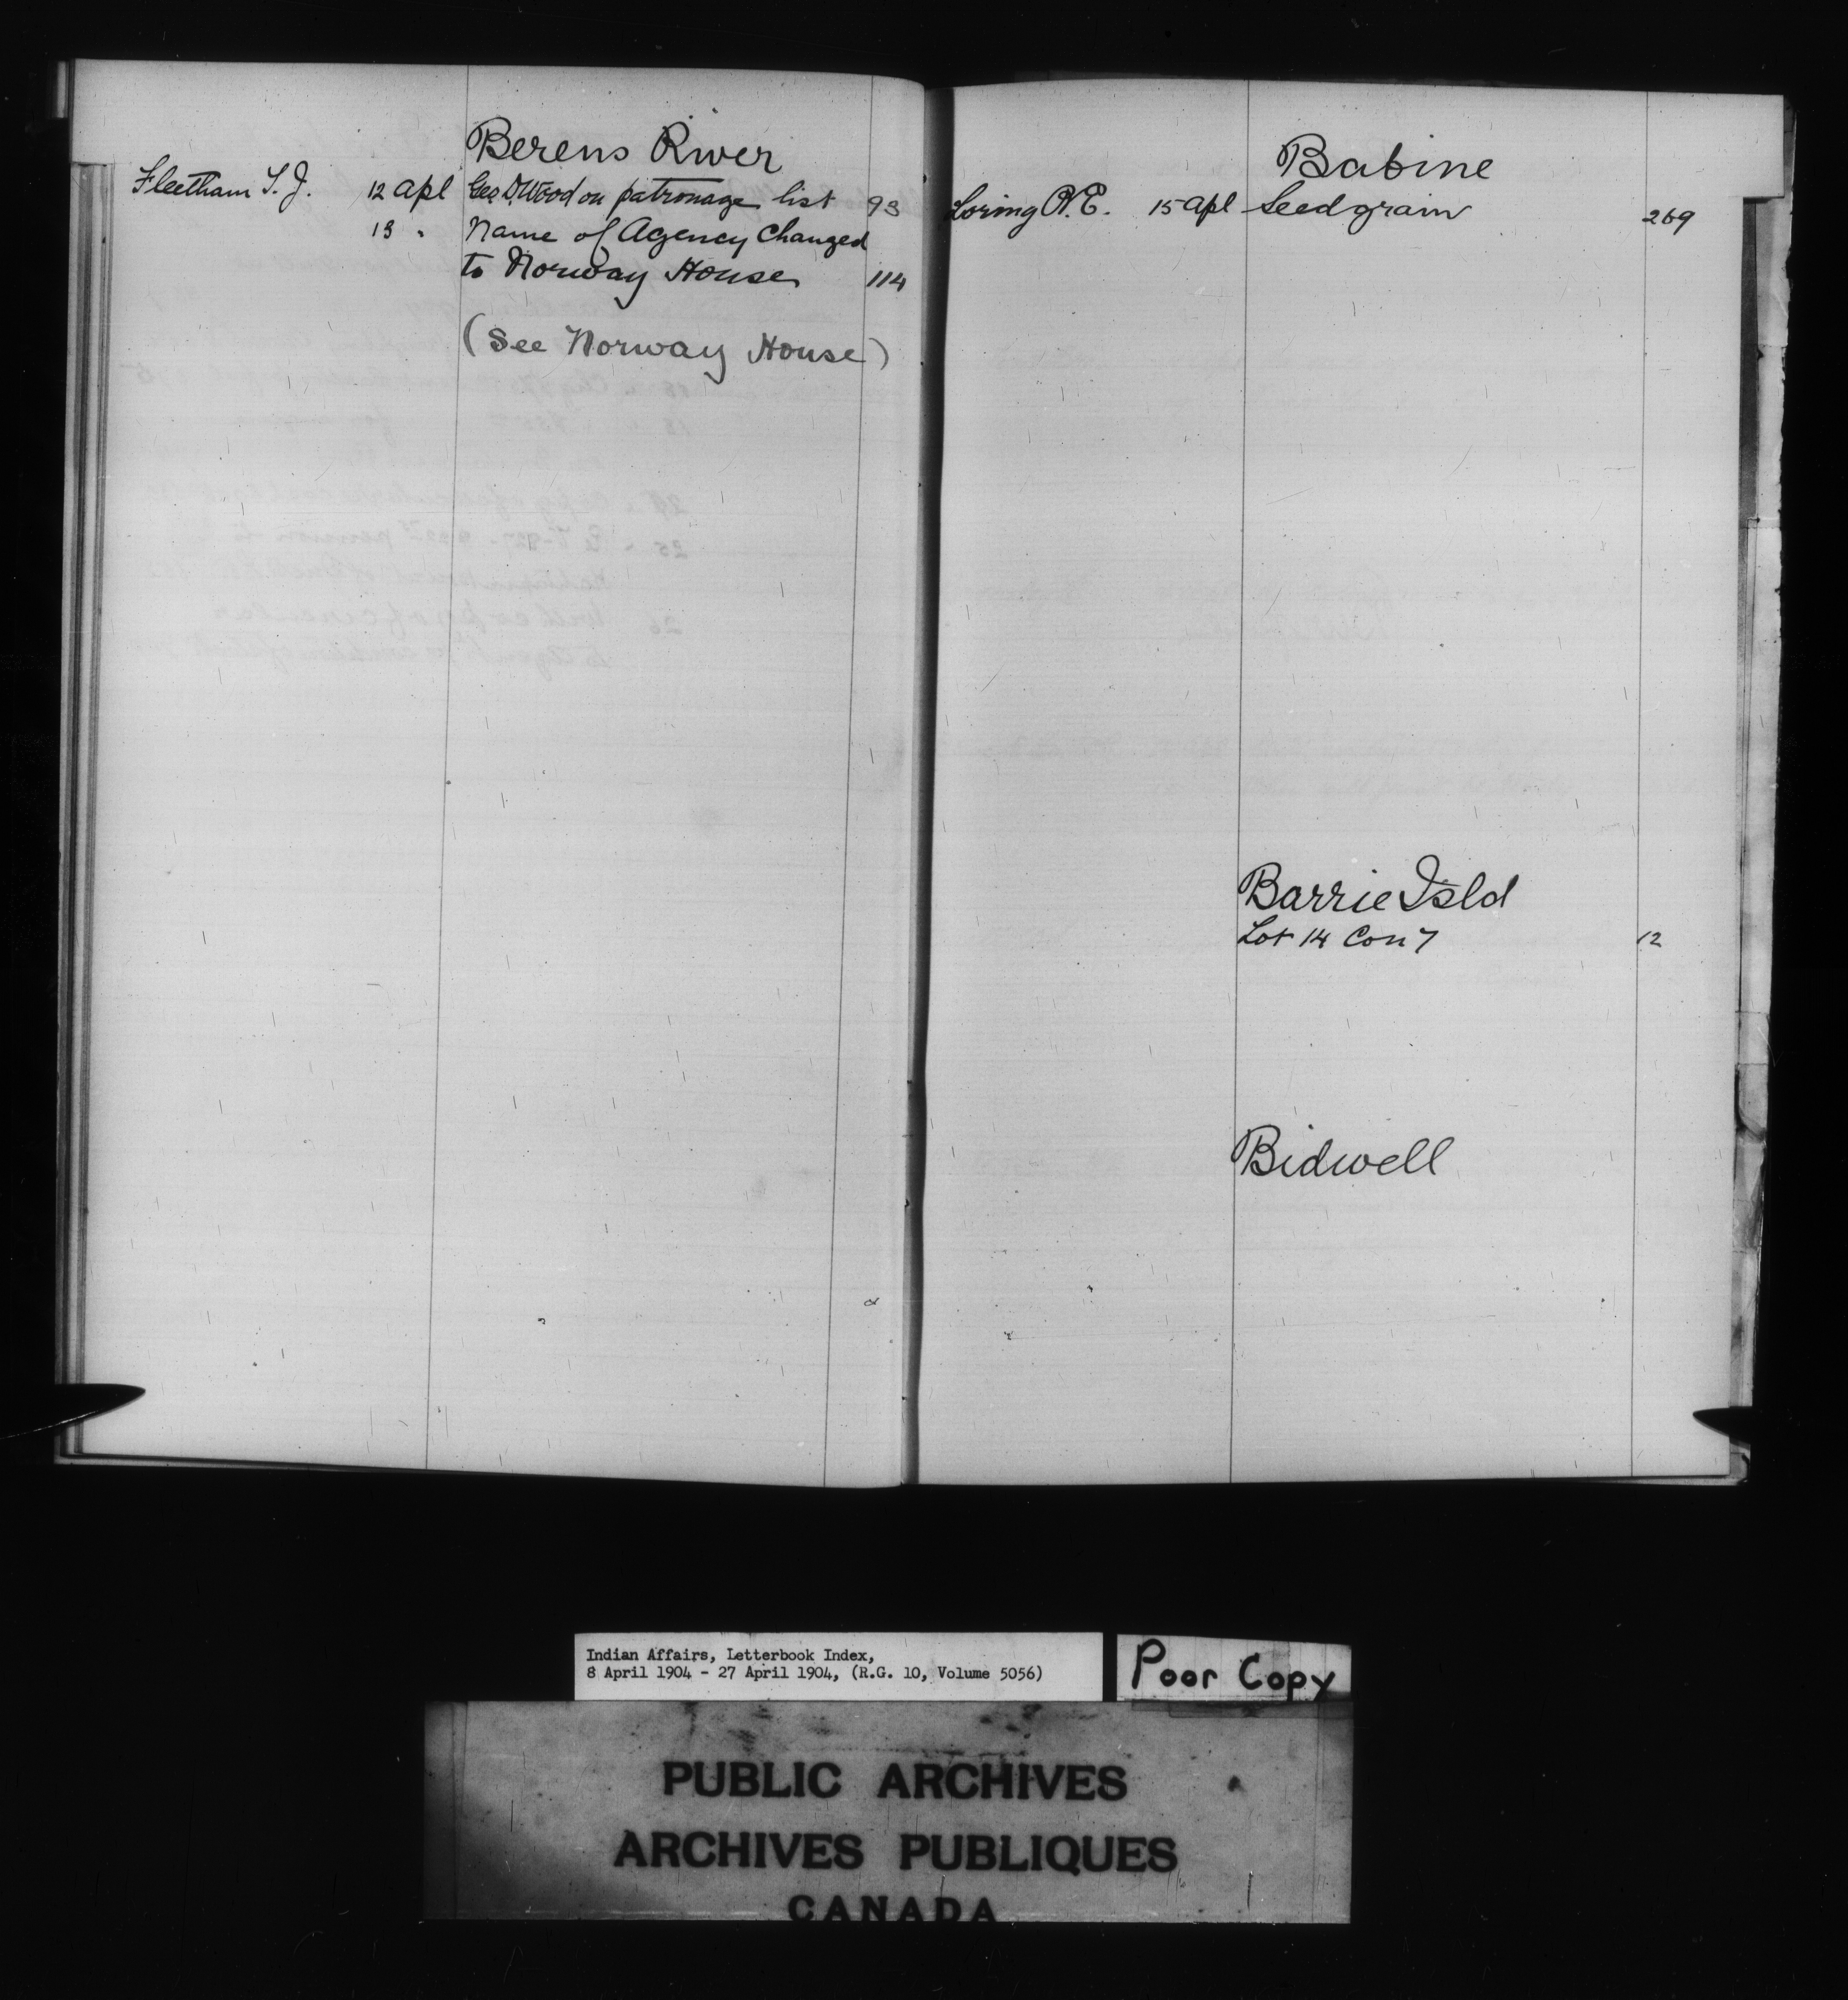 Berens River
Fleetham T. J. 12 Apl Geo. D. Wood on patronage list 93
13 " Name of Agency Changed
to Norway House 114
(See Norway House)
Babine
Loring R. E. 15 Apl Seed grain 269
Barrie Isld
Lot 14 Con 7 12
Bidwell
Indian Affairs, Letterbook Index,
8 April 1904 - 27 April 1904, (R.G. 10, Volume 5056)
Poor Copy
PUBLIC ARCHIVES
ARCHIVES PUBLIQUES
CANADA